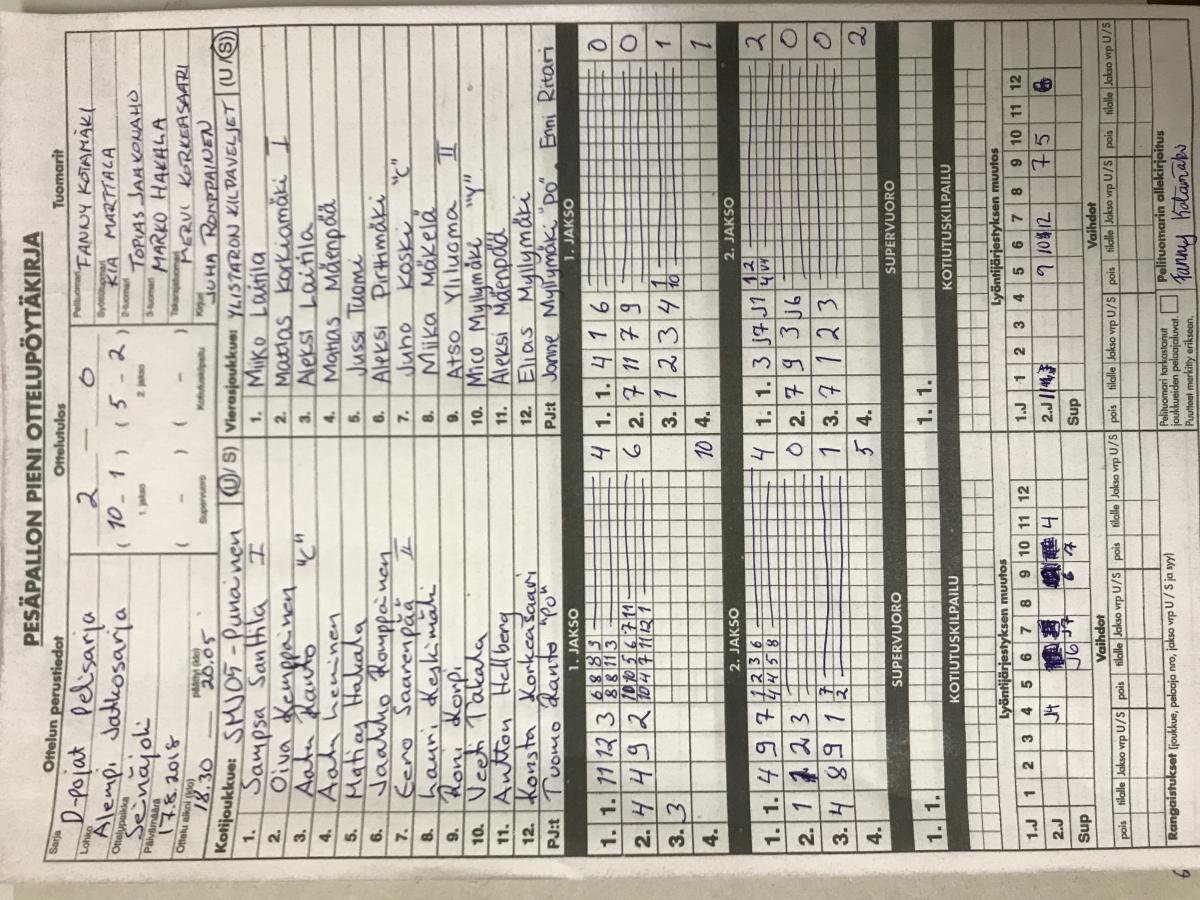 PESÄPALLON PIENI OTTELUPÖYTÄKIRJA
Ottelun perustiedot
Sarja
D-pojat Pelisarja
Lohko
Alempi Jatkosarja
Ottelupaikka
Seinäjoki
Päivämäärä
17.8.2018
Ottelu alkoi (klo) 18.30
päättyi (klo) 20.05
Ottelutulos
2 — 0
( 10 - 1 ) ( 5 - 2 )
1. jakso 2. jakso
( - ) ( - )
Supervuoro Kotiutuskilpailu
Tuomarit
Pelituomari FANNY KOTAMÄKI
Syöttötuomari KIA MARTTALA
2-tuomari TOPIAS JAAKONAHO
3-tuomari MARKO HAKALA
Takarajatuomari MERVI KORKEASAARI
Kirjuri JUHA ROMPPAINEN
Kotijoukkue: SMJ05-Punainen (U/ S)
1. Sampsa Santtila I
2. Oiva Kemppainen
3. Aatu Rauto "C"
4. Aatu Leminen
5. Matias Hakala
6. Jaakko Romppainen
7. Eero Saarenpää II
8. Lauri Keskimäki
9. Roni Korpi
10. Veeti Takala
11. Antton Hellberg
12. Konsta Korkeasaari
PJ:t Tuomo Rauto "PO"
Vierasjoukkue: YLISTARON KILPAVELJET (U/S)
1. Miiko Laitila
2. Matias Korkiamäki I
3. Aleksi Laitila
4. Matias Mäenpää
5. Jussi Tuomi
6. Aleksi Pirttimäki
7. Juho Koski "C"
8. Miika Mäkelä
9. Atso Yliluoma II
10. Mico Myllymäki "Y"
11. Aleksi Mäenpää
12. Elias Myllymäki
PJ:t Janne Myllymäki "PO", Enni Ritari
1. JAKSO
1. 1. 11 12 3 6 8 8 3 4
8 8 11 3
2. 4 4 9 2 10 10 5 6 7 11 6
10 4 7 11 12 1
3. 3
4. 10
1. JAKSO
1. 1. 4 1 6 0
2. 7 11 7 9 0
3. 1 2 3 4 1 1
10
4. 1
2. JAKSO
1. 1. 4 9 7 1 2 3 6 4
4 4 5 8
2. 1 2 3 0
3. 4 8 9 1 7 1
2
4. 5
2. JAKSO
1. 1. 3 J7 J1 1 2 2
2. 7 9 3 J6 0
3. 7 1 2 3 0
4. 2
SUPERVUORO
1. 1.
SUPERVUORO
1. 1.
KOTIUTUSKILPAILU
KOTIUTUSKILPAILU
Lyöntijärjestyksen muutos
1 2 3 4 5 6 7 8 9 10 11 12
1.J
2.J J4 J6 J7 6 7 4
Sup
Lyöntijärjestyksen muutos
1 2 3 4 5 6 7 8 9 10 11 12
1.J
2.J 9 10 12 7 5
Sup
Vaihdot
pois tilalle Jakso vrp U/S pois tilalle Jakso vrp U/S pois tilalle Jakso vrp U/S
Vaihdot
pois tilalle Jakso vrp U/S pois tilalle Jakso vrp U/S pois tilalle Jakso vrp U/S
Rangaistukset (joukkue, pelaaja nro, jakso vrp U / S ja syy)
Pelituomari tarkastanut
joukkueiden pelaajaluvat.
Puutteet merkitty erikseen.
Pelituomarin allekirjoitus
Fanny Kotamäki
6